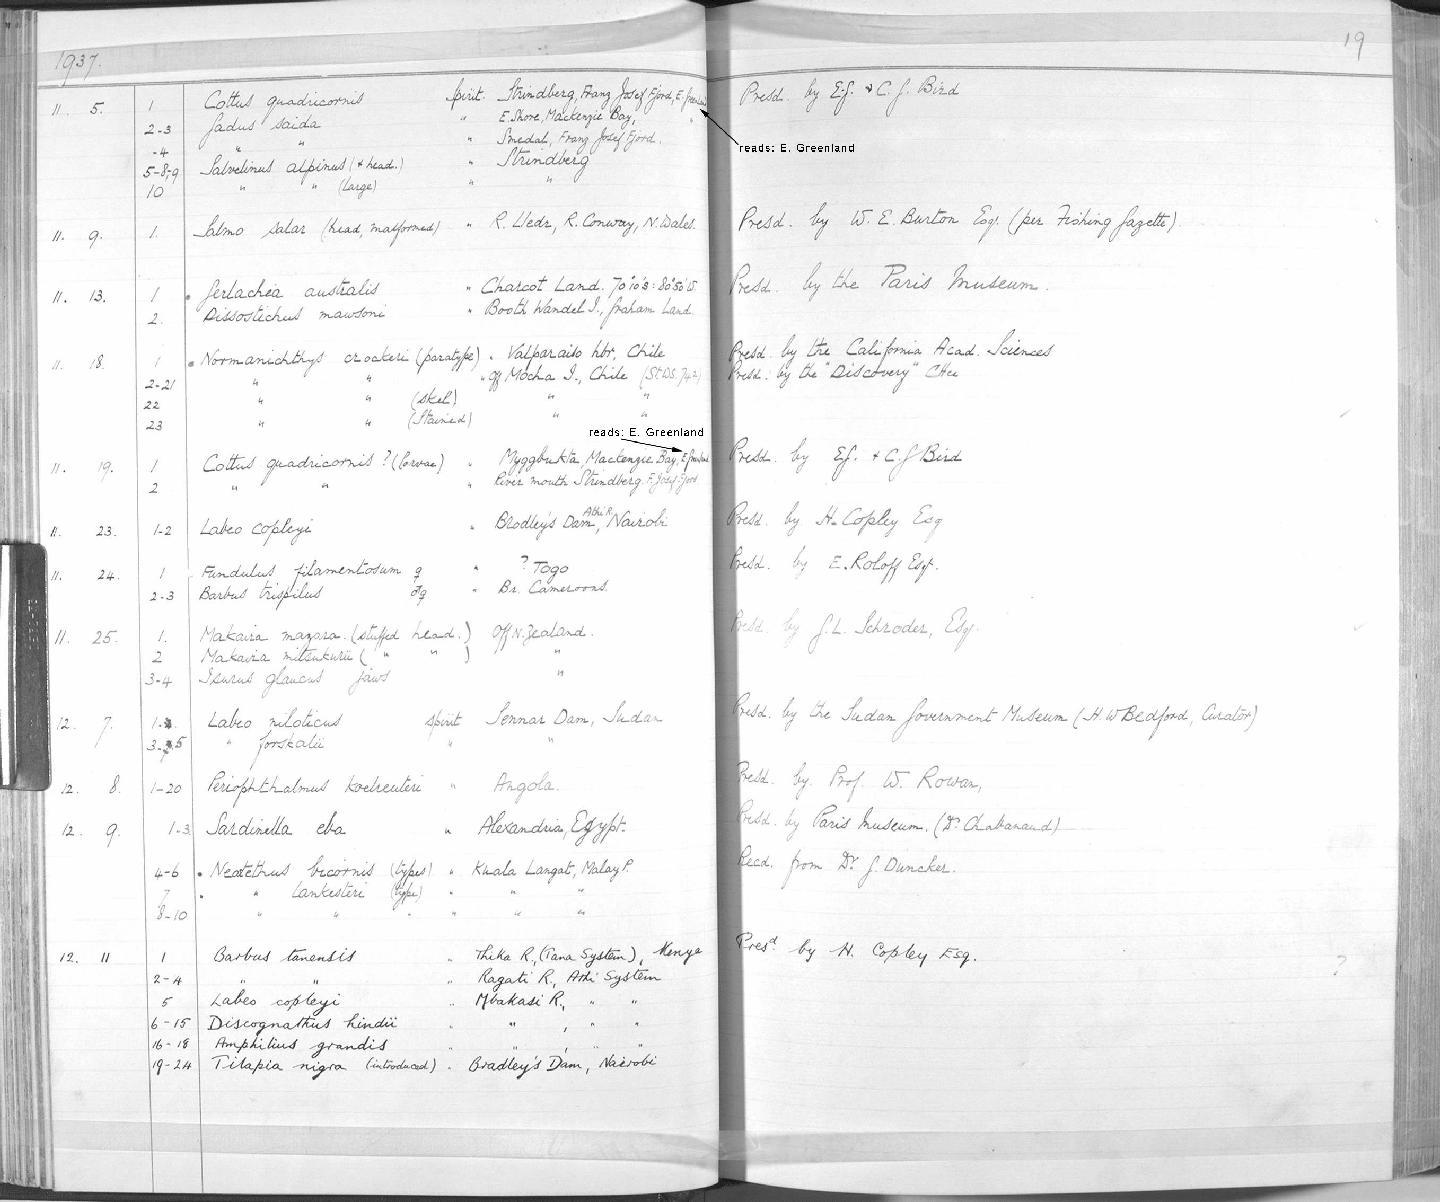 1937. 19
11. 5. 1 Cottus quadricornis Spirit. Strindberg, Franz Josef Fjord, E. Greenland Presd. by E.G. & C.G. Bird
2-3 Gadus saida " E. Shore, Mackenzie Bay, "
reads: E. Greenland
-4 " " " Smedal, Franz Josef Fjord.
5-8-9 Salvelinus alpinus (& head.) " Strindberg
10 " " (large) " "
11. 9. 1. Salmo salar (head, malformed) " R. Lledr, R. Conway, N. Wales. Presd. by W. E. Burton Esq. (per Fishing Gazette)
11. 13. 1 Gerlachea australis " Charcot Land. 70°10'S: 80°50'W Presd. by the Paris Museum.
2. Dissostichus mawsoni " Booth Wandel I., Graham Land.
11. 18. 1 Normanichthys crockeri (paratype) " Valparaiso hbr, Chile Presd. by the California Acad. Sciences
2-21 " " " off Mocha I., Chile (St. DS. 742) Presd. by the "Discovery" Cttee
22 " " (skel) " "
23 " " (Stained) " "
reads: E. Greenland
11. 19. 1 Cottus quadricornis? (larvae) " Myggbukta, Mackenzie Bay, E. Greenland Presd. by E.G. & C G Bird
2 " " " River mouth Strindberg. F. Josef Fjord
11. 23. 1-2 Labeo copleyi " Bradley's Dam, Athi R. Nairobi Presd. by H. Copley Esq
11. 24. 1 Fundulus filamentosum ♀ " ? Togo Presd. by E. Roloff Esq.
2-3 Barbus trispilus ♂♀ " Br. Cameroons.
11. 25. 1. Makaira mazara. (stuffed head.) Off N. Zealand. Presd. by J. L. Schroder, Esq.
2 Makaira mitsukurii ( " " ) "
3-4 Isurus glaucus jaws "
12. 7. Labeo niloticus spirit Sennar Dam, Sudan Presd. by the Sudan Government Museum (H. W Bedford, Curator)
" forskalii " "
12. 8. 1-20 Periophthalmus koelreuteri " Angola. Presd. by. Prof. W. Rowan,
12. 9. 1-3 Sardinella eba " Alexandria, Egypt. Presd. by Paris Museum. (Dr Chabanaud)
4-6 Neotethus bicornis (types) " Kuala Langat, Malay P. Recd. from Dr. G. Duncker.
7 " lankesteri (type) " " "
8-10 " " " " " "
12. 11 1 Barbus tanensis " Thika R., (Tana System), Kenya Presd by H. Copley Esq.
2-4 " " " Ragati R., Athi System
5 Labeo copleyi " Mbakasi R., " "
6-15 Discognathus hindii " " , " "
16-18 Amphilius grandis " " , " "
19-24 Tilapia nigra (introduced) " Bradley's Dam, Nairobi
?